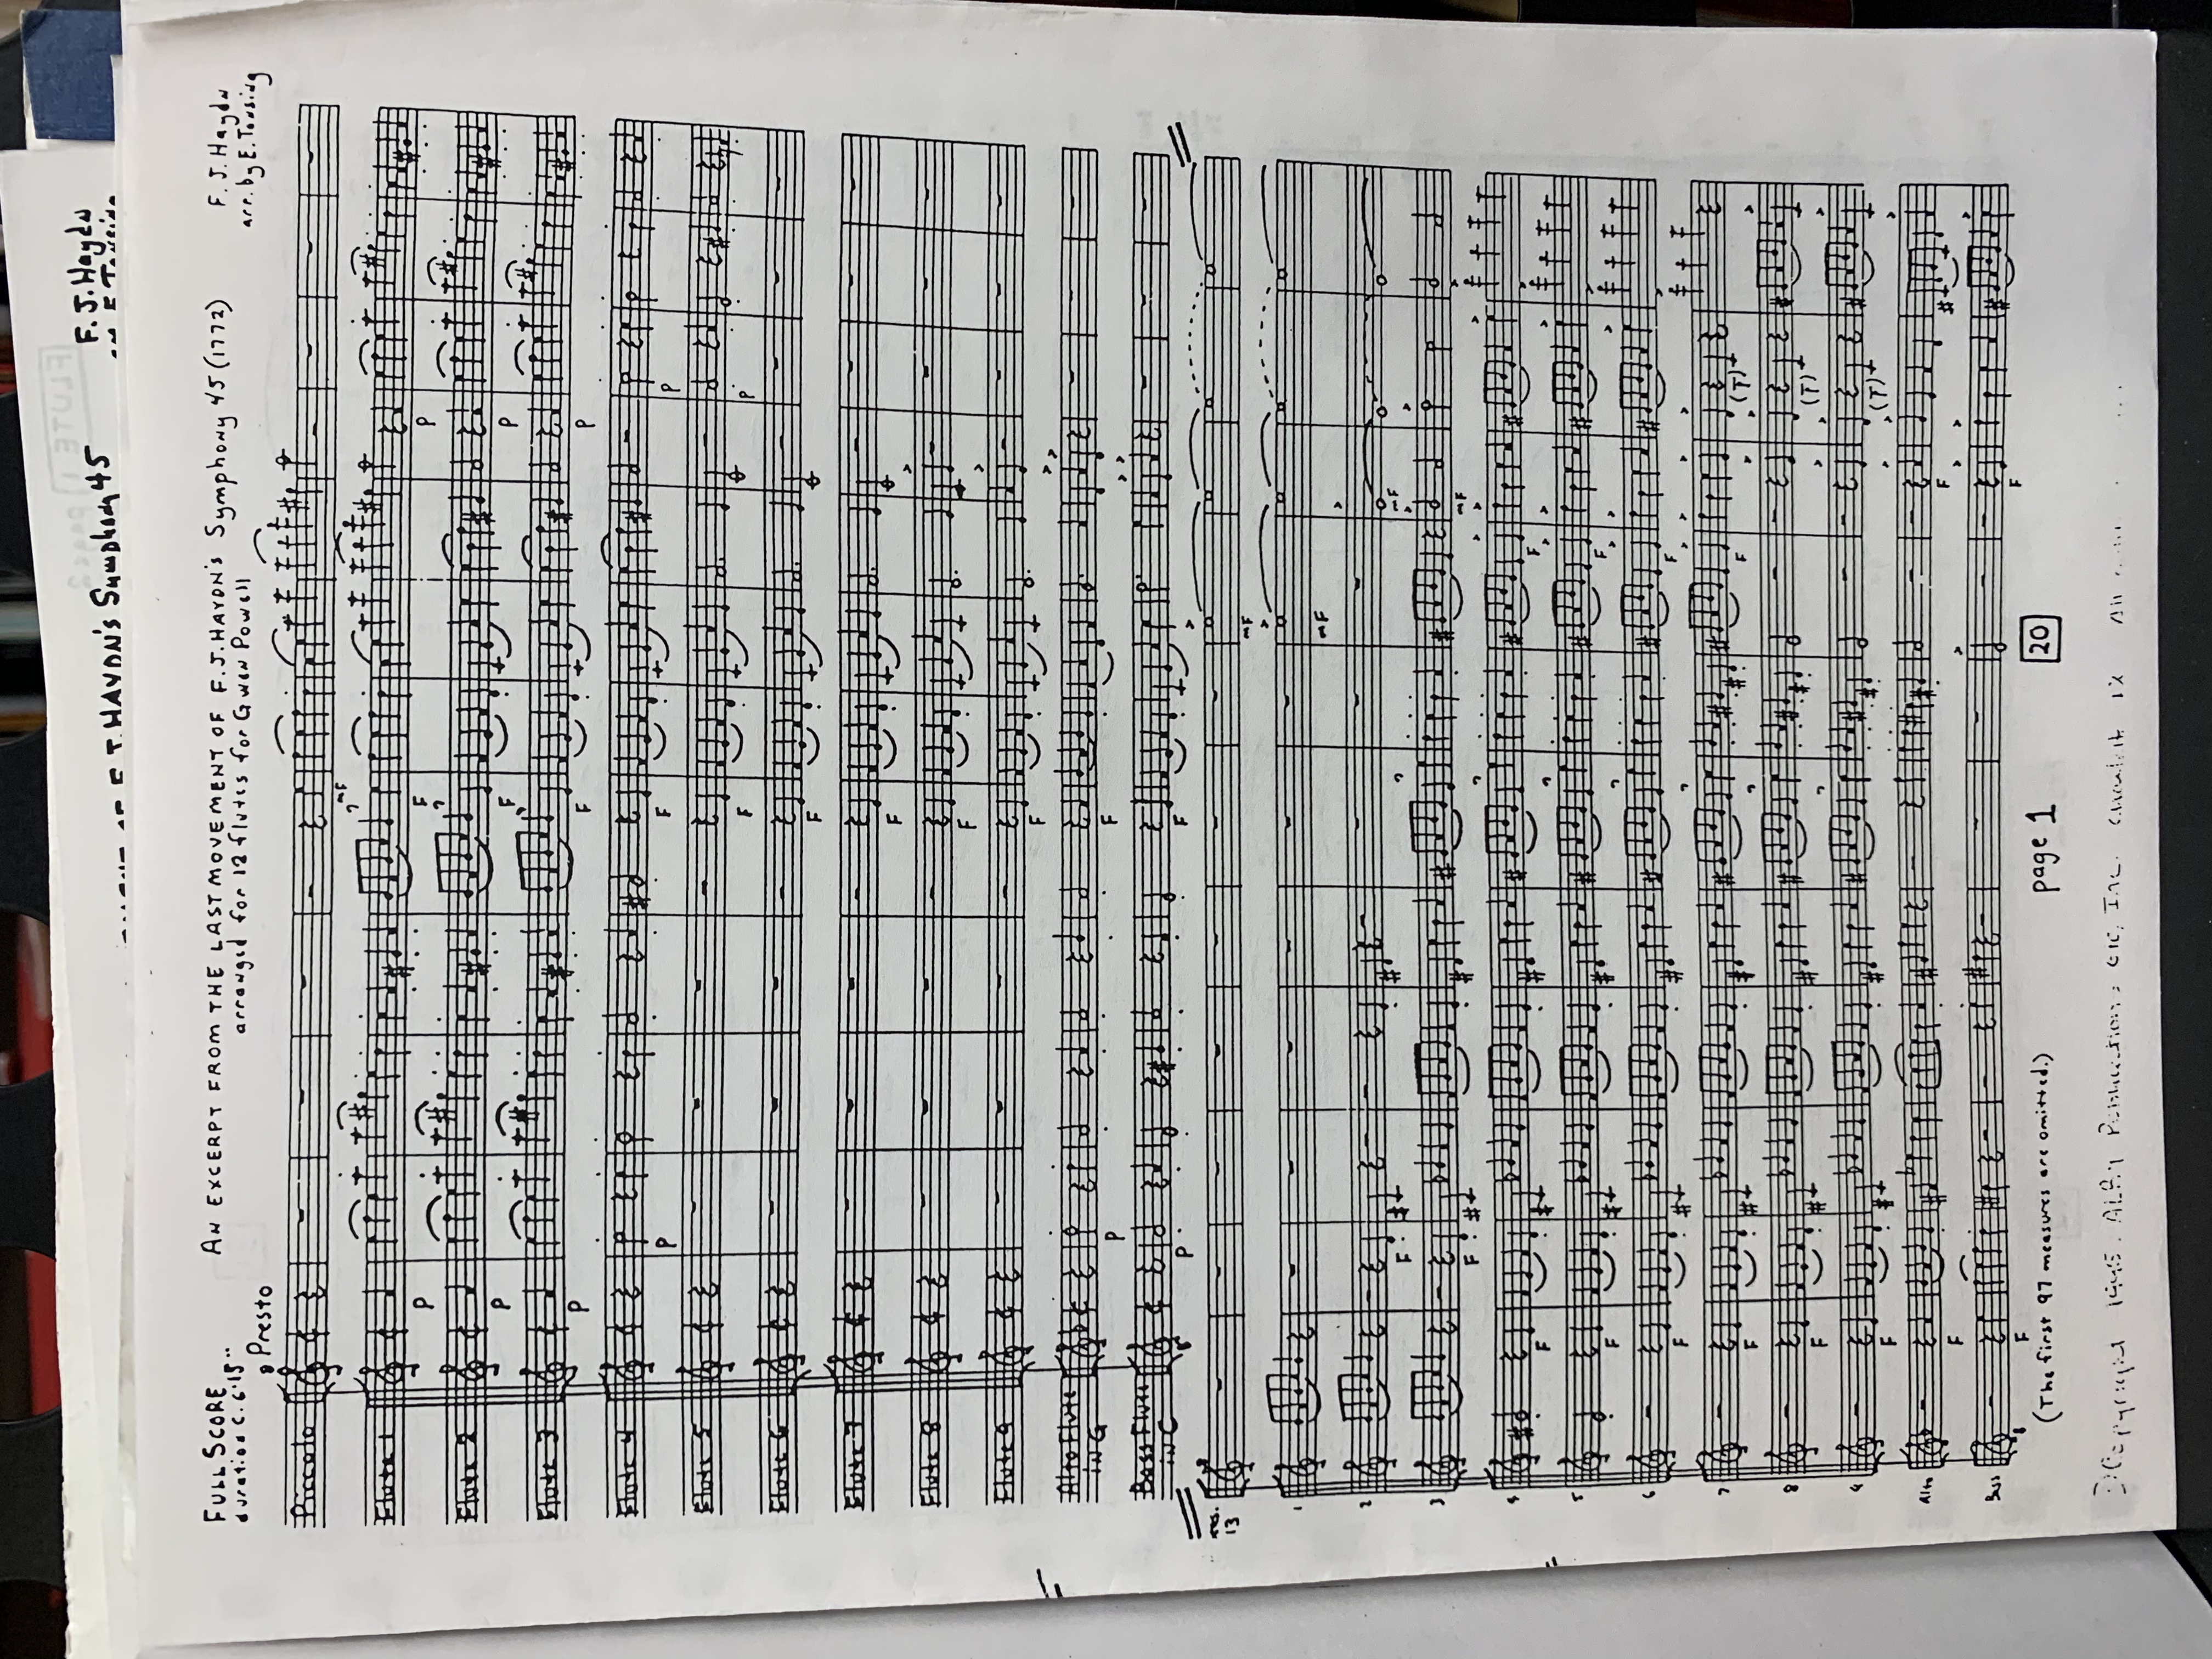 F. J. Haydn
HAYDN'S Symphony 45
FLUTE 1
FULL SCORE
duration c. 6'15"
AN EXCERPT FROM THE LAST MOVEMENT OF F.J. HAYDN'S Symphony 45 (1772)
arranged for 12 flutes for Gwen Powell
F. J. Haydn
arr. by E. Tonsing
Presto
8
Piccolo
mF
Flute 1
P F P
Flute 2
P F P
Flute 3
P F P
Flute 4
P F P
Flute 5
F P
Flute 6
F
Flute 7
F
Flute 8
F
Flute 9
F
Alto Flute
in G
P F
Bass Flute
in C
P F
mes.
13
mF
1
mF
2
F mF
3
F mF
4
F F
5
F F
6
F F
7
F F (T)
8
F (T)
9
F (T)
Alto
F F
Bass
F F
(The first 97 measures are omitted.)
page 1
20
Copyright ALRY Publications, etc., Inc.